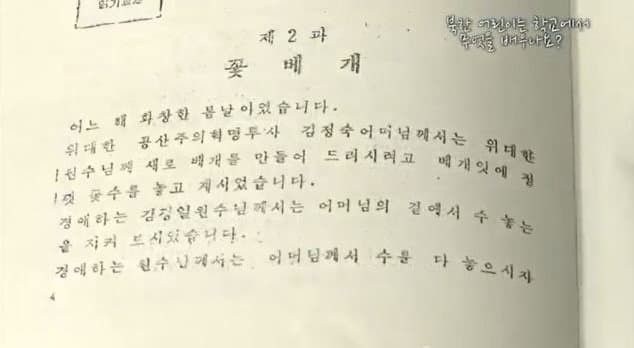 읽기교재
북한 어린이는 학교에서
무엇을 배우나요?
제 2 과
꽃 베 개
어느 해 화창한 봄날이었습니다.
위대한 공산주의혁명투사 김정숙어머님께서는 위대한
원수님께 새로 베개를 만들어 드리시려고 베개잇에 정
꽃수를 놓고 계시였습니다.
경애하는 김정일원수님께서는 어머님의 곁에서 수 놓는
을 지켜 드시였습니다.
경애하는 원수님께서는 어머님께서 수를 다 놓으시자
4